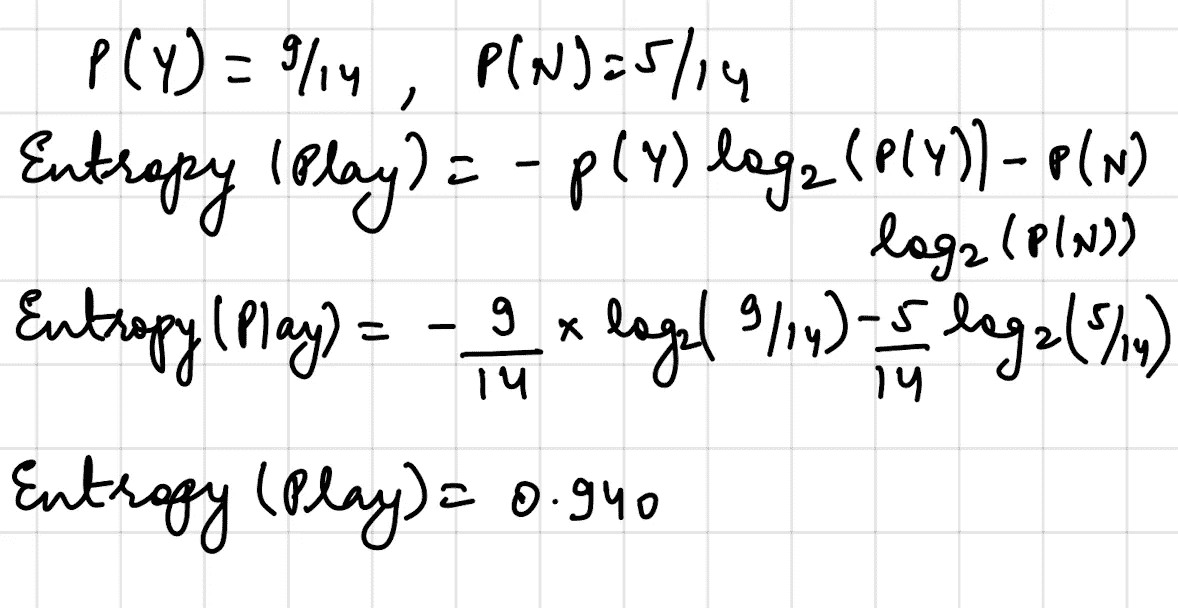 P(Y) = 9/14 , P(N) = 5/14
Entropy (Play) = - p(Y) log₂ (P(Y)) - P(N)
log₂ (P(N))
Entropy (Play) = - 9/14 x log₂( 9/14) - 5/14 log₂(5/14)
Entropy (Play) = 0.940